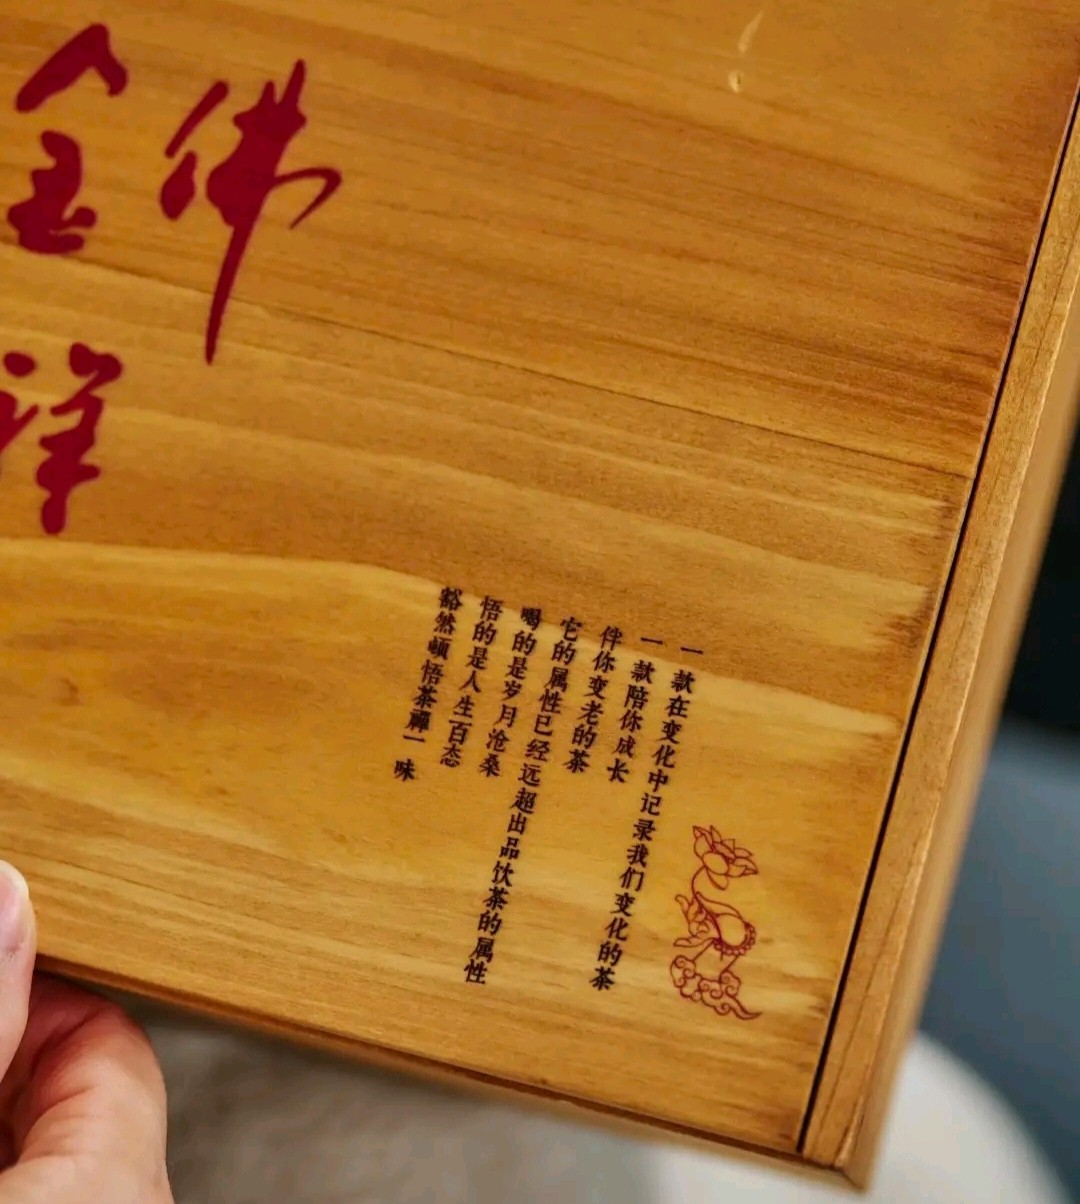 佛
金祥
一款在变化中记录我们变化的茶
一款陪你成长
伴你变老的茶
它的属性已经远超出品饮茶的属性
喝的是岁月沧桑
悟的是人生百态
豁然顿悟茶禪一味